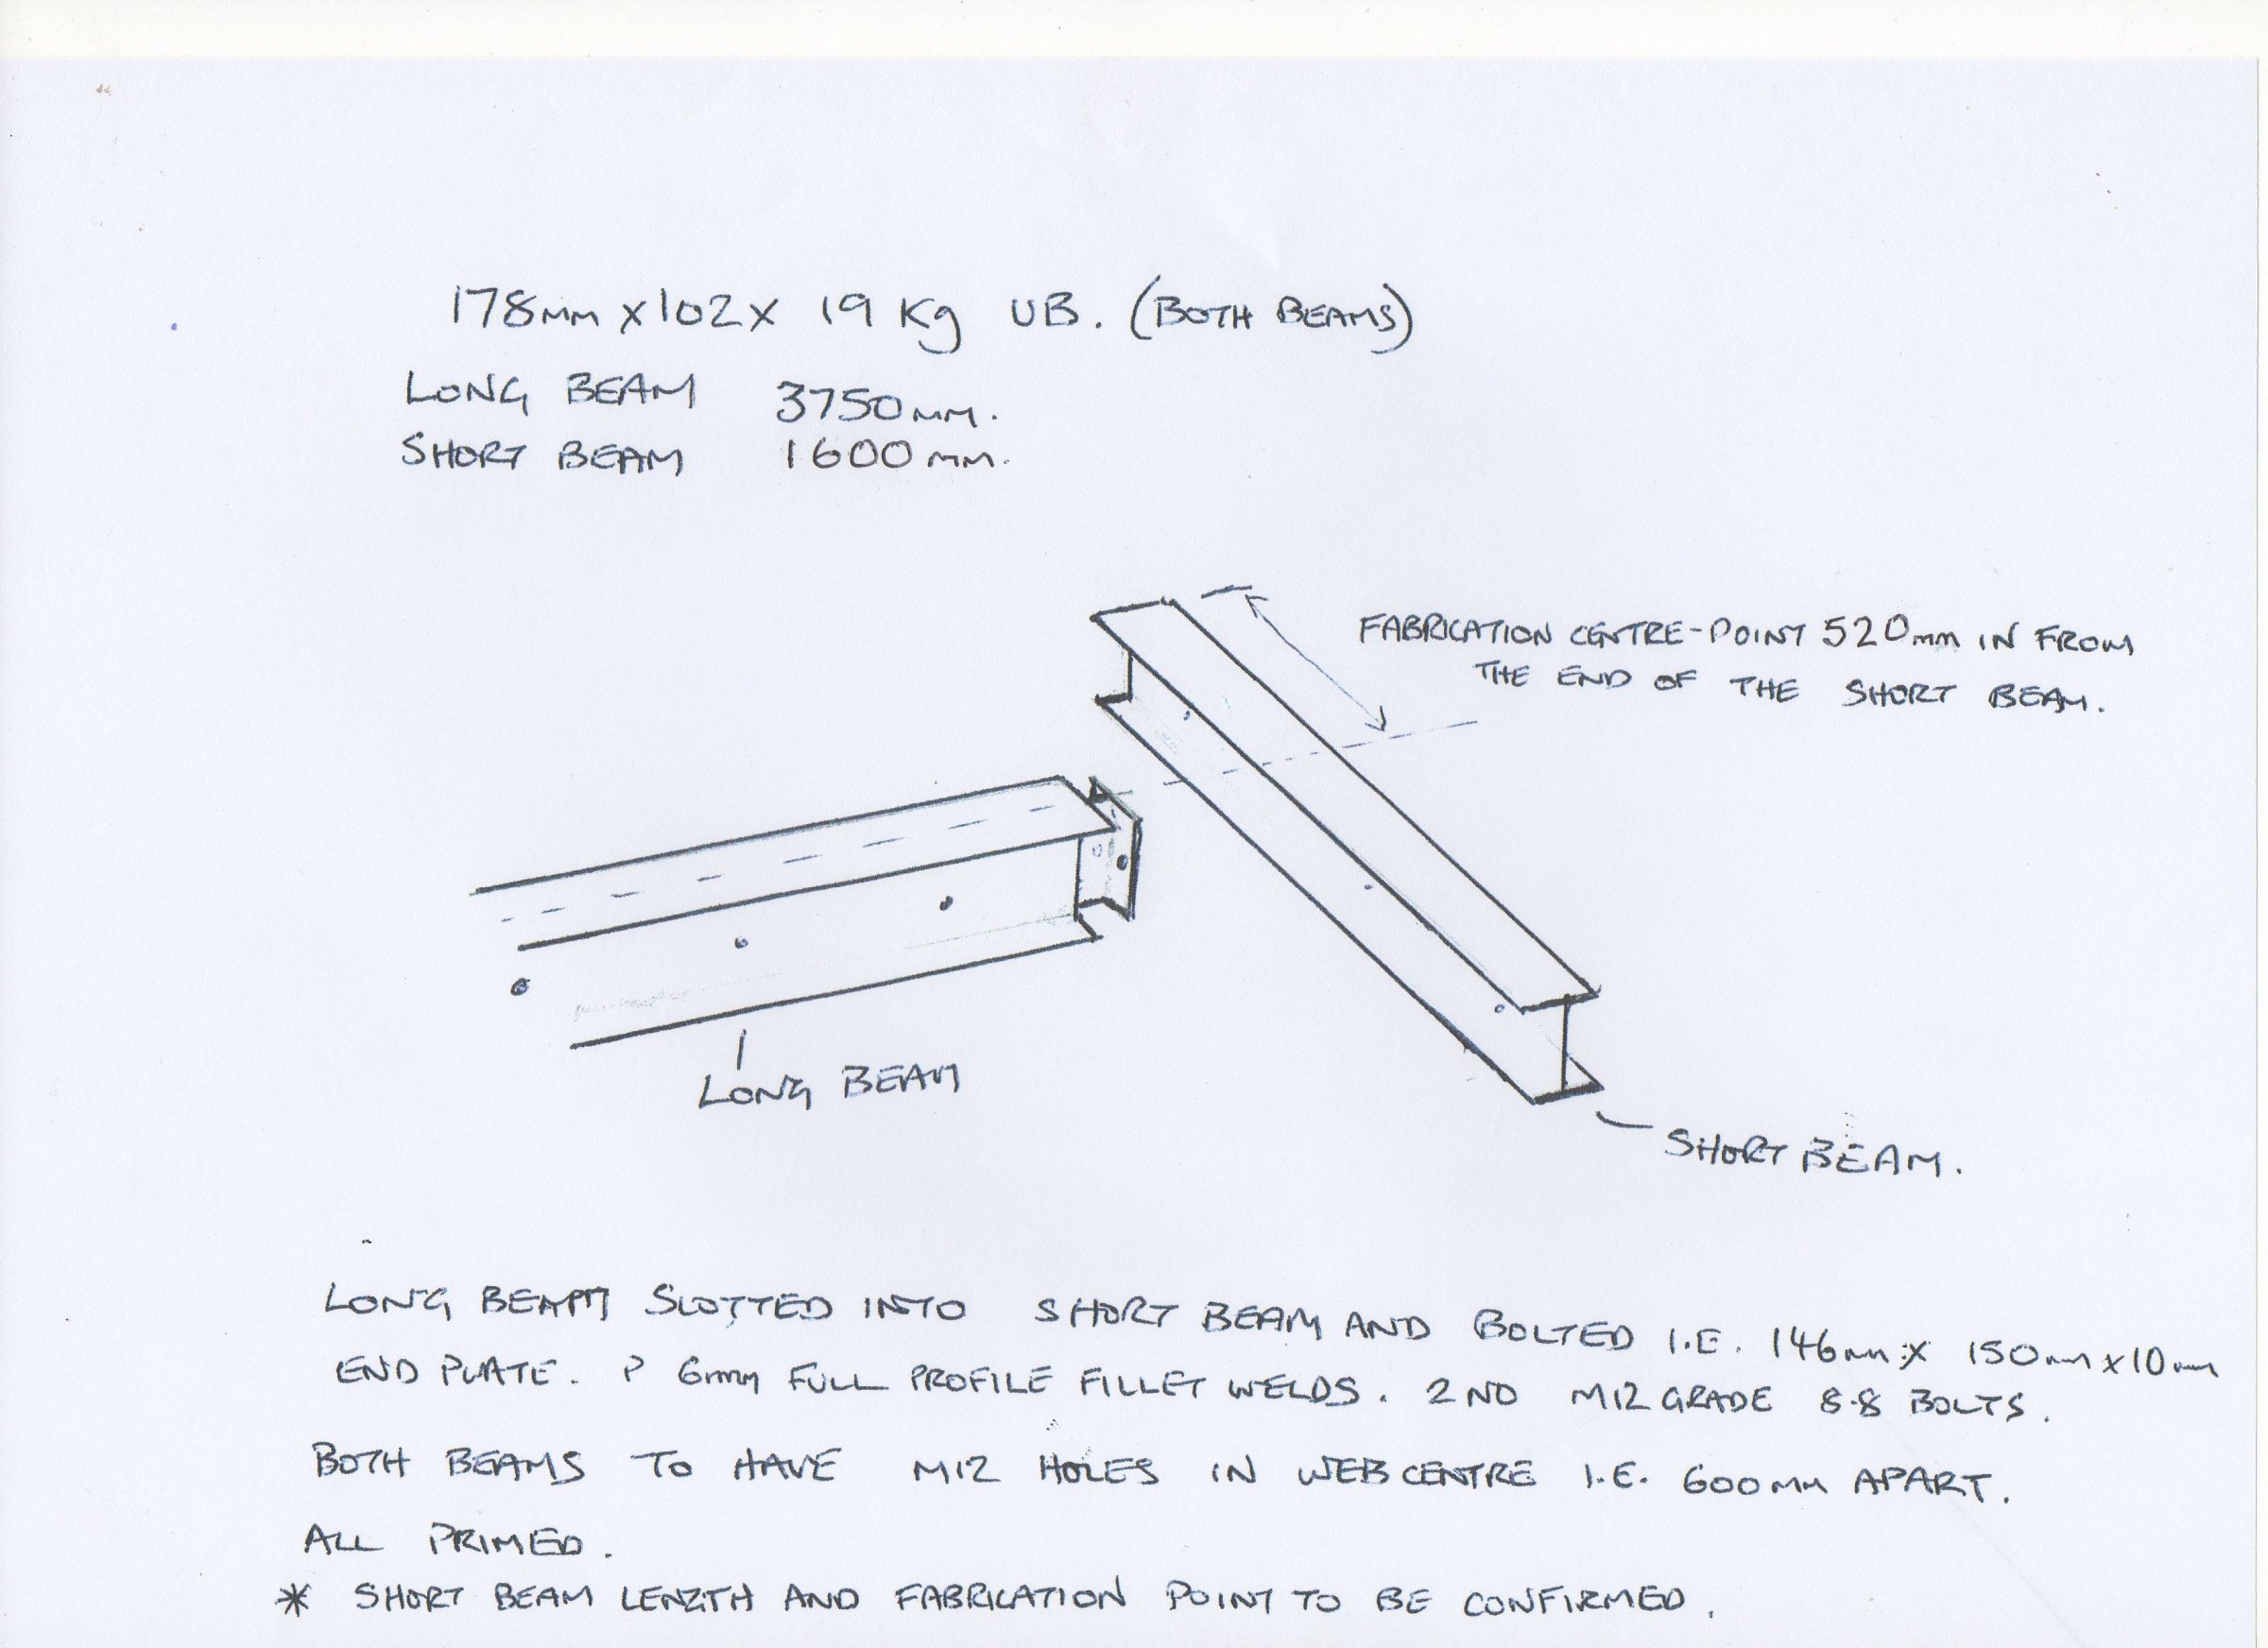 178mm x 102 x 19 Kg UB. (BOTH BEAMS)
LONG BEAM 3750mm.
SHORT BEAM 1600mm.
FABRICATION CENTRE-POINT 520mm IN FROM
THE END OF THE SHORT BEAM.
LONG BEAM
SHORT BEAM.
LONG BEAM SLOTTED INTO SHORT BEAM AND BOLTED I.E. 146mm x 150mm x 10mm
END PLATE. P 6mm FULL PROFILE FILLET WELDS. 2NO M12 GRADE 8.8 BOLTS.
BOTH BEAMS TO HAVE M12 HOLES IN WEB CENTRE I.E. 600mm APART.
ALL PRIMED.
* SHORT BEAM LENGTH AND FABRICATION POINT TO BE CONFIRMED.